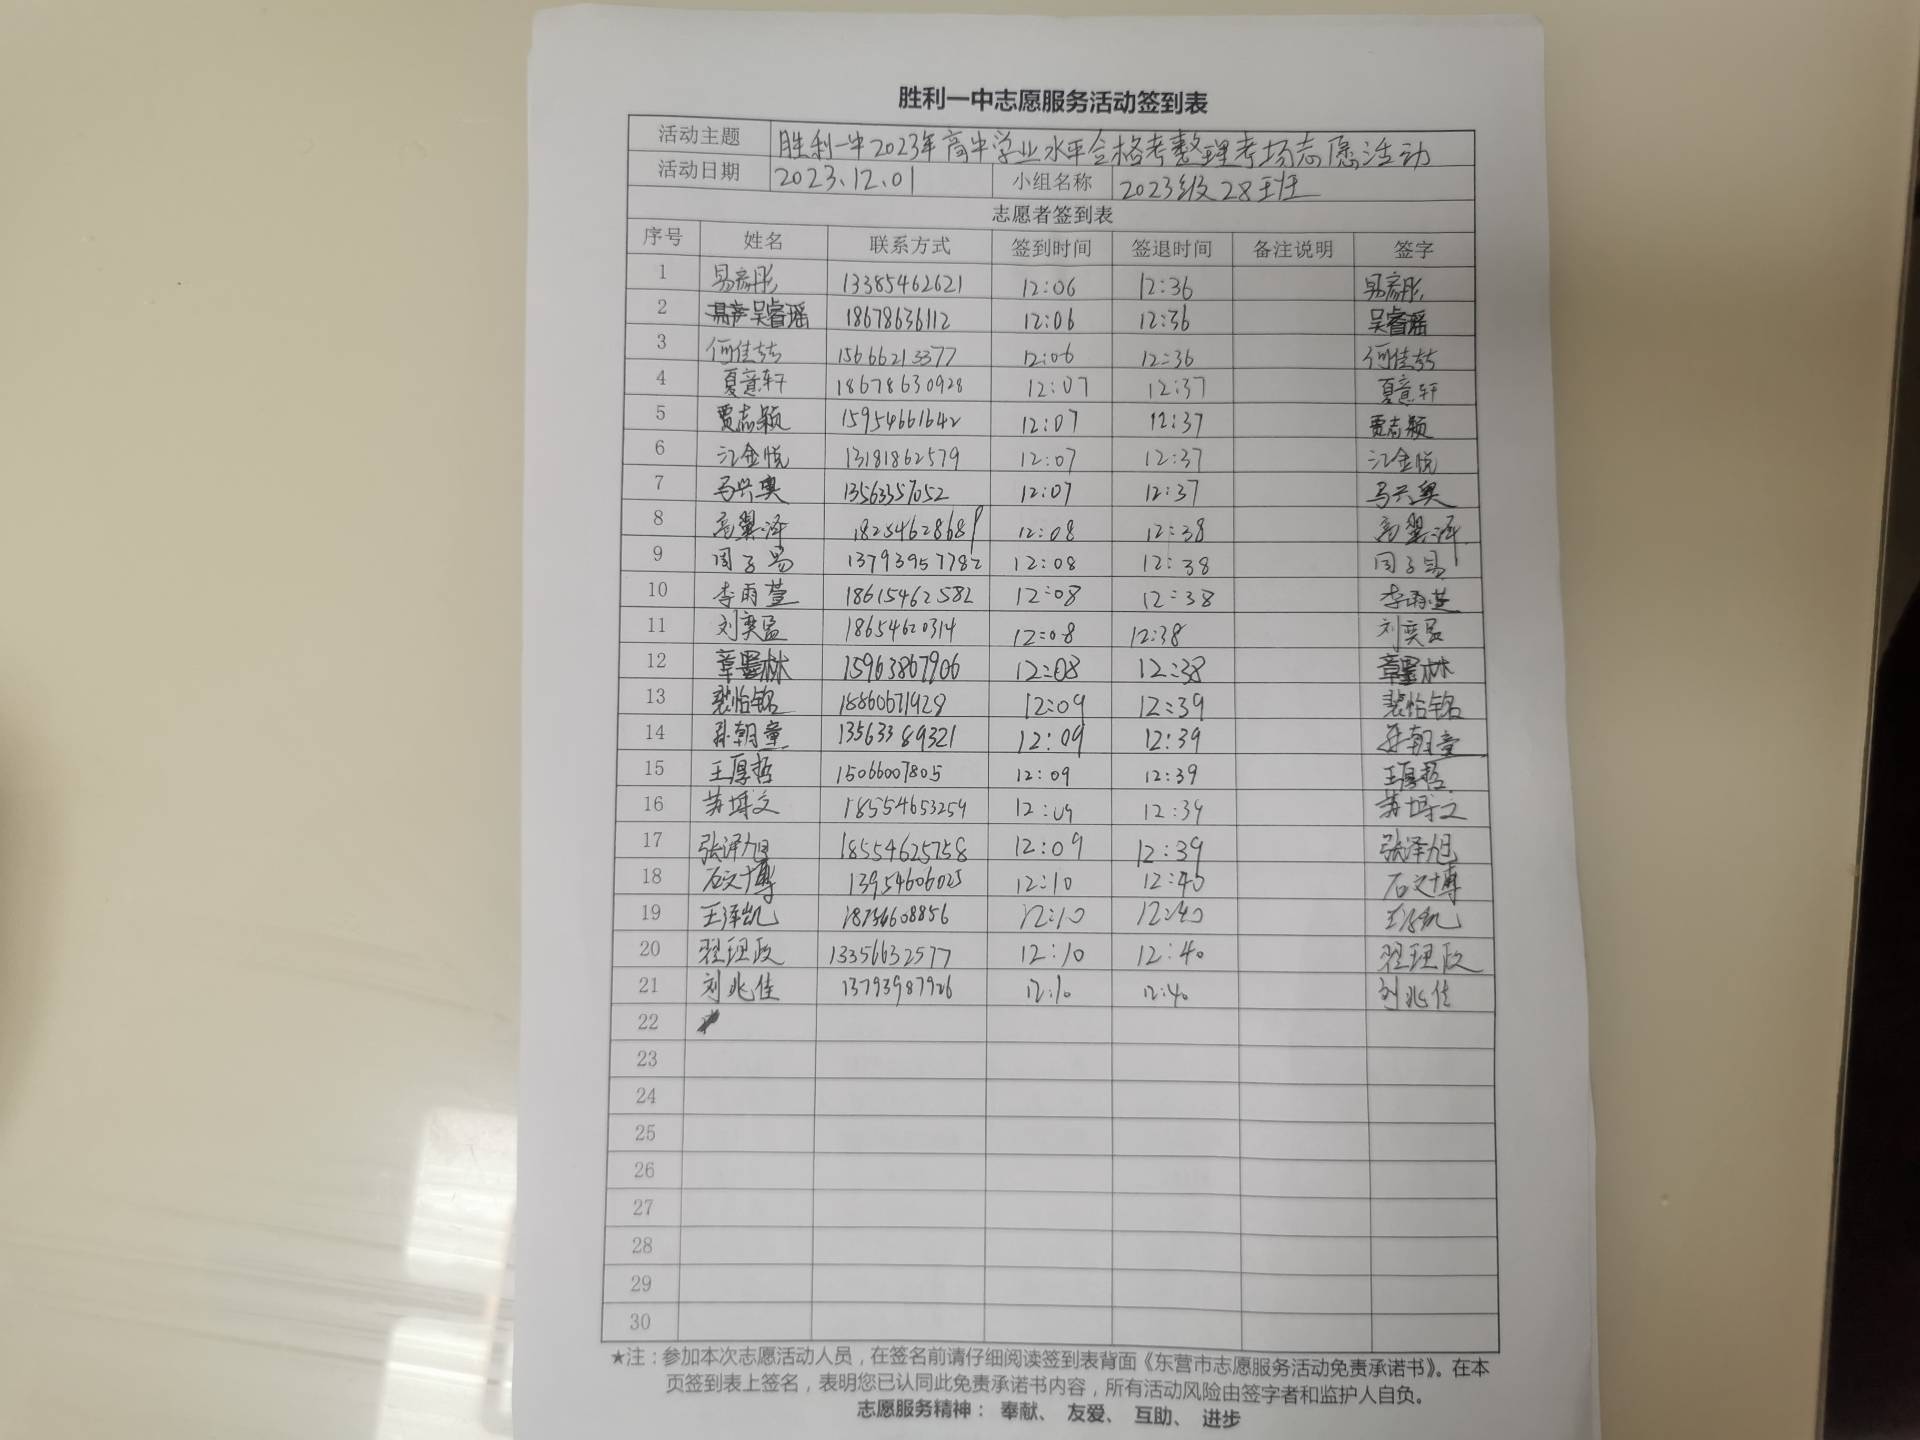 胜利一中志愿服务活动签到表
活动主题 胜利一中2023年高中学业水平合格考整理考场志愿活动
活动日期 2023.12.01 小组名称 2023级28班
志愿者签到表
序号 姓名 联系方式 签到时间 签退时间 备注说明 签字
1 易彦彤 13385462621 12:06 12:36 易彦彤
2 吴睿瑶 18678636112 12:06 12:36 吴睿瑶
3 何佳喆 15666213377 12:06 12:36 何佳喆
4 夏意轩 18678630928 12:07 12:37 夏意轩
5 贾志颖 15954661642 12:07 12:37 贾志颖
6 江金悦 13181862579 12:07 12:37 江金悦
7 马兴奥 13563357052 12:07 12:37 马兴奥
8 高翼泽 18254628689 12:08 12:38 高翼泽
9 周子易 13793957782 12:08 12:38 周子易
10 李雨萱 18615462582 12:08 12:38 李雨萱
11 刘奕孟 18654620314 12:08 12:38 刘奕孟
12 章墨林 15963867906 12:08 12:38 章墨林
13 裴怡铭 18860671928 12:09 12:39 裴怡铭
14 孙朝童 13563389321 12:09 12:39 孙朝童
15 王厚哲 15066007805 12:09 12:39 王厚哲
16 苏博文 18554653259 12:09 12:39 苏博文
17 张泽旭 18554625758 12:09 12:39 张泽旭
18 石文博 13954606025 12:10 12:40 石文博
19 王泽凯 18756608856 12:10 12:40 王泽凯
20 翟理政 13356632577 12:10 12:40 翟理政
21 刘兆佳 13793987926 12:10 12:40 刘兆佳
22
23
24
25
26
27
28
29
30
★注：参加本次志愿活动人员，在签名前请仔细阅读签到表背面《东营市志愿服务活动免责承诺书》。在本
页签到表上签名，表明您已认同此免责承诺书内容，所有活动风险由签字者和监护人自负。
志愿服务精神： 奉献、 友爱、 互助、 进步